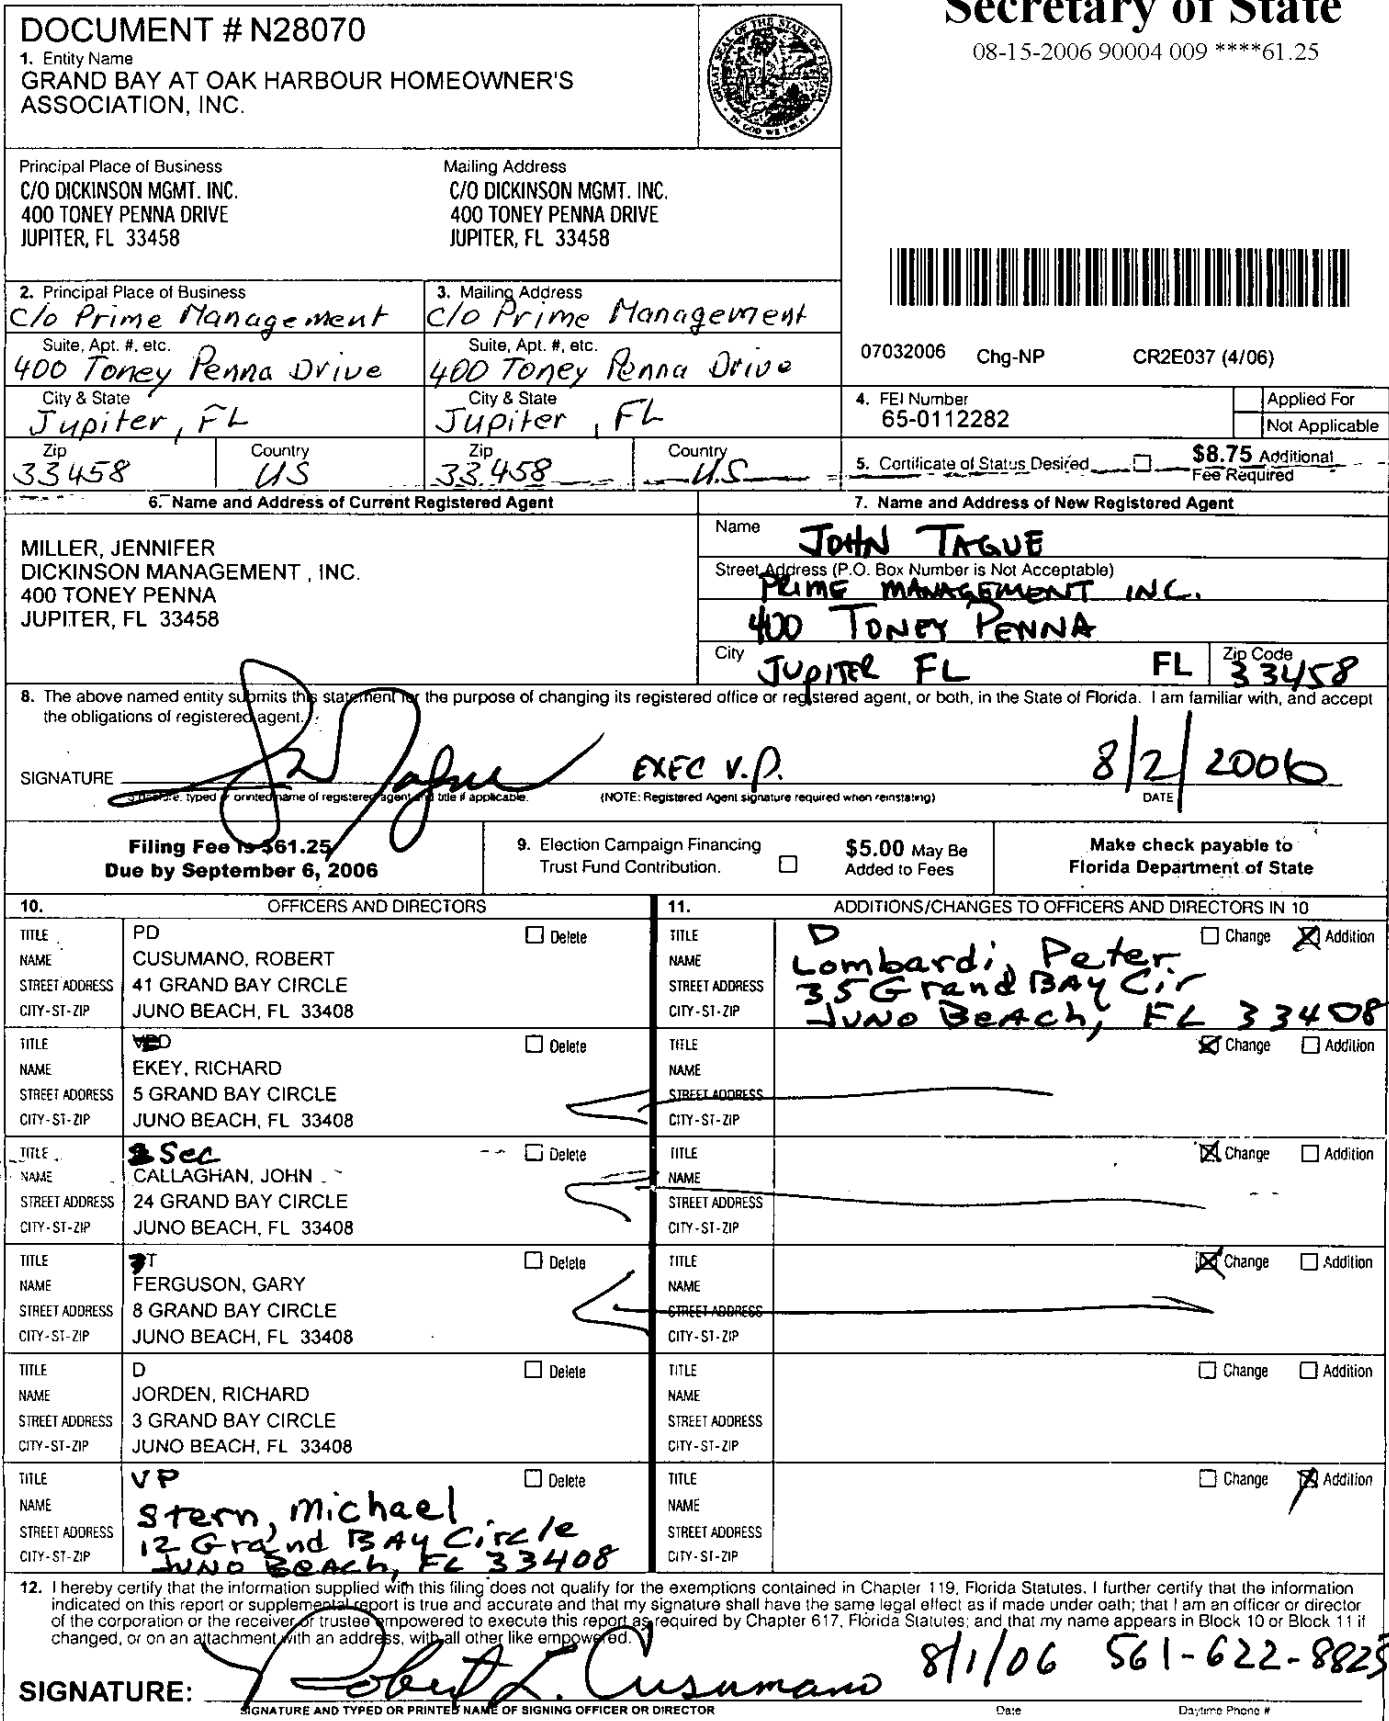 Secretary of State
08-15-2006 90004 009 ****61.25
DOCUMENT # N28070
1. Entity Name
GRAND BAY AT OAK HARBOUR HOMEOWNER'S
ASSOCIATION, INC.
GREAT SEAL OF THE STATE OF FLORIDA
IN GOD WE TRUST
Principal Place of Business
C/O DICKINSON MGMT. INC.
400 TONEY PENNA DRIVE
JUPITER, FL 33458
Mailing Address
C/O DICKINSON MGMT. INC.
400 TONEY PENNA DRIVE
JUPITER, FL 33458
2. Principal Place of Business
c/o Prime Management
Suite, Apt. #, etc.
400 Toney Penna Drive
City & State
Jupiter, FL
Zip
33458
Country
US
3. Mailing Address
c/o Prime Management
Suite, Apt. #, etc.
400 Toney Penna Drive
City & State
Jupiter, FL
Zip
33458
Country
U.S
07032006 Chg-NP CR2E037 (4/06)
4. FEI Number
65-0112282
Applied For
Not Applicable
5. Certificate of Status Desired
$8.75 Additional
Fee Required
6. Name and Address of Current Registered Agent
MILLER, JENNIFER
DICKINSON MANAGEMENT , INC.
400 TONEY PENNA
JUPITER, FL 33458
7. Name and Address of New Registered Agent
Name JOHN TAGUE
Street Address (P.O. Box Number is Not Acceptable)
PRIME MANAGEMENT INC.
400 TONEY PENNA
City JUPITER FL FL Zip Code 33458
8. The above named entity submits this statement for the purpose of changing its registered office or registered agent, or both, in the State of Florida. I am familiar with, and accept
the obligations of registered agent.
SIGNATURE Tague EXEC V.P. 8/2/2006
Signature, typed or printed name of registered agent and title if applicable. (NOTE: Registered Agent signature required when reinstating) DATE
Filing Fee is $61.25
Due by September 6, 2006
9. Election Campaign Financing
Trust Fund Contribution.
$5.00 May Be
Added to Fees
Make check payable to
Florida Department of State
10. OFFICERS AND DIRECTORS
11. ADDITIONS/CHANGES TO OFFICERS AND DIRECTORS IN 10
TITLE PD Delete
NAME CUSUMANO, ROBERT
STREET ADDRESS 41 GRAND BAY CIRCLE
CITY-ST-ZIP JUNO BEACH, FL 33408
TITLE D Change Addition
NAME Lombardi, Peter
STREET ADDRESS 35 Grand BAY Cir
CITY-ST-ZIP JUNO BeAch, FL 33408
TITLE D Delete
NAME EKEY, RICHARD
STREET ADDRESS 5 GRAND BAY CIRCLE
CITY-ST-ZIP JUNO BEACH, FL 33408
TITLE Change Addition
NAME
STREET ADDRESS
CITY-ST-ZIP
TITLE Sec Delete
NAME CALLAGHAN, JOHN
STREET ADDRESS 24 GRAND BAY CIRCLE
CITY-ST-ZIP JUNO BEACH, FL 33408
TITLE Change Addition
NAME
STREET ADDRESS
CITY-ST-ZIP
TITLE T Delete
NAME FERGUSON, GARY
STREET ADDRESS 8 GRAND BAY CIRCLE
CITY-ST-ZIP JUNO BEACH, FL 33408
TITLE Change Addition
NAME
STREET ADDRESS
CITY-ST-ZIP
TITLE D Delete
NAME JORDEN, RICHARD
STREET ADDRESS 3 GRAND BAY CIRCLE
CITY-ST-ZIP JUNO BEACH, FL 33408
TITLE Change Addition
NAME
STREET ADDRESS
CITY-ST-ZIP
TITLE VP Delete
NAME Stern, Michael
STREET ADDRESS 12 Grand BAY Circle
CITY-ST-ZIP JUNO BEACh, FL 33408
TITLE Change Addition
NAME
STREET ADDRESS
CITY-ST-ZIP
12. I hereby certify that the information supplied with this filing does not qualify for the exemptions contained in Chapter 119, Florida Statutes. I further certify that the information
indicated on this report or supplemental report is true and accurate and that my signature shall have the same legal effect as if made under oath; that I am an officer or director
of the corporation or the receiver or trustee empowered to execute this report as required by Chapter 617, Florida Statutes; and that my name appears in Block 10 or Block 11 if
changed, or on an attachment with an address, with all other like empowered.
SIGNATURE: Robert L. Cusumano 8/1/06 561-622-8825
SIGNATURE AND TYPED OR PRINTED NAME OF SIGNING OFFICER OR DIRECTOR Date Daytime Phone #